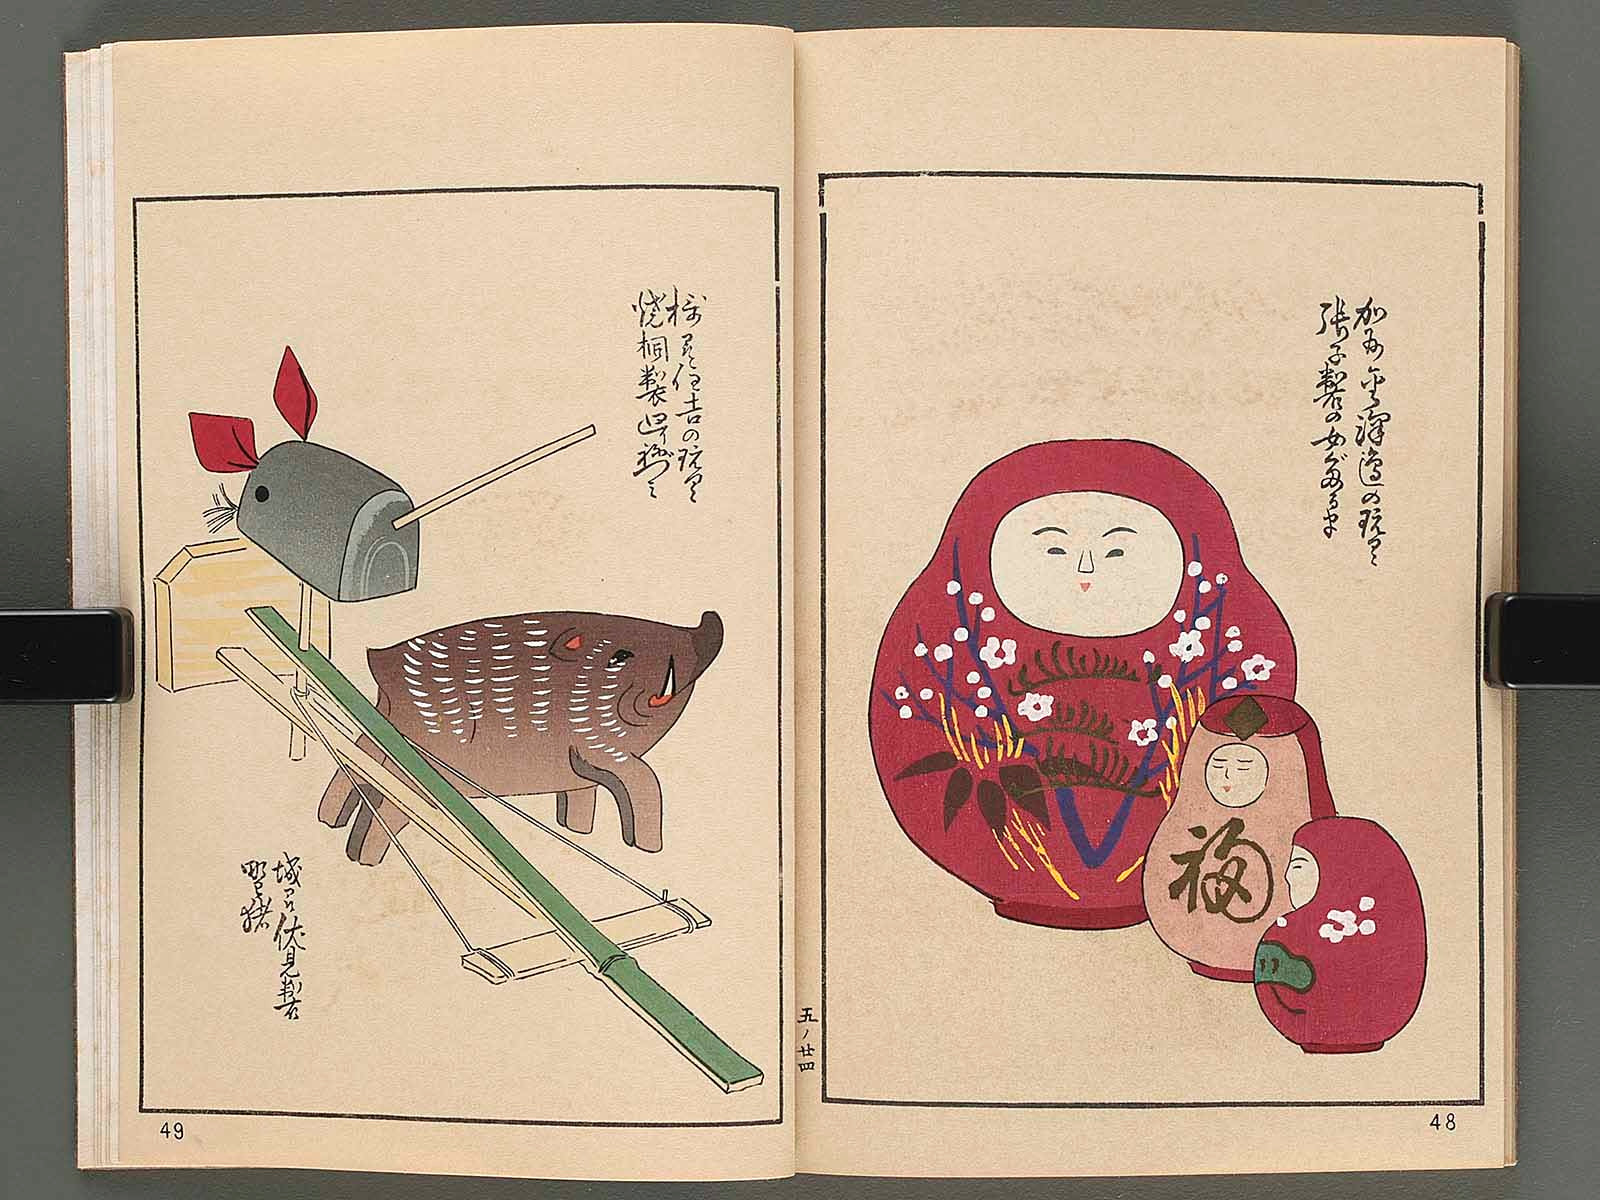 加州金澤邊の玩具
張子製の女だるま
福
48
五ノ廿四
住吉の玩具
焼桐製
城州伏見製
野猪
49